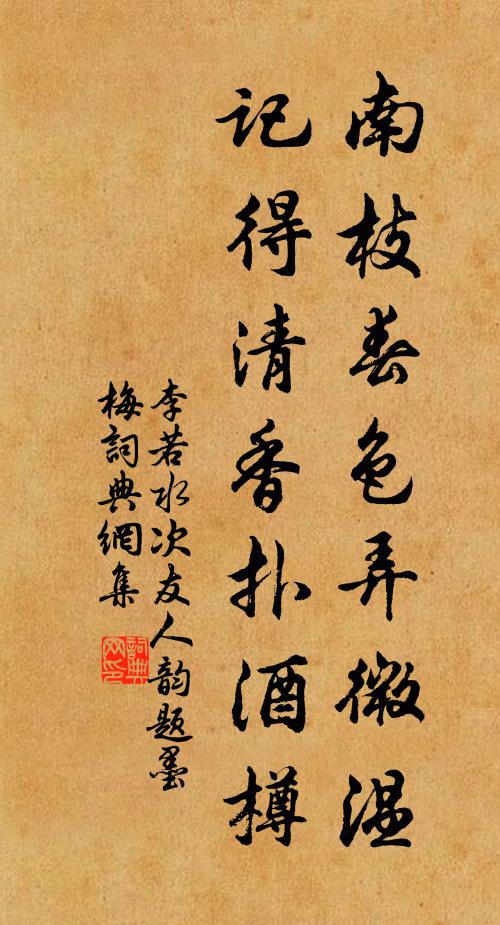 南枝春色弄微温
記得清香扑酒樽
李若水次友人韵题墨
梅詞典網集
詞典网印